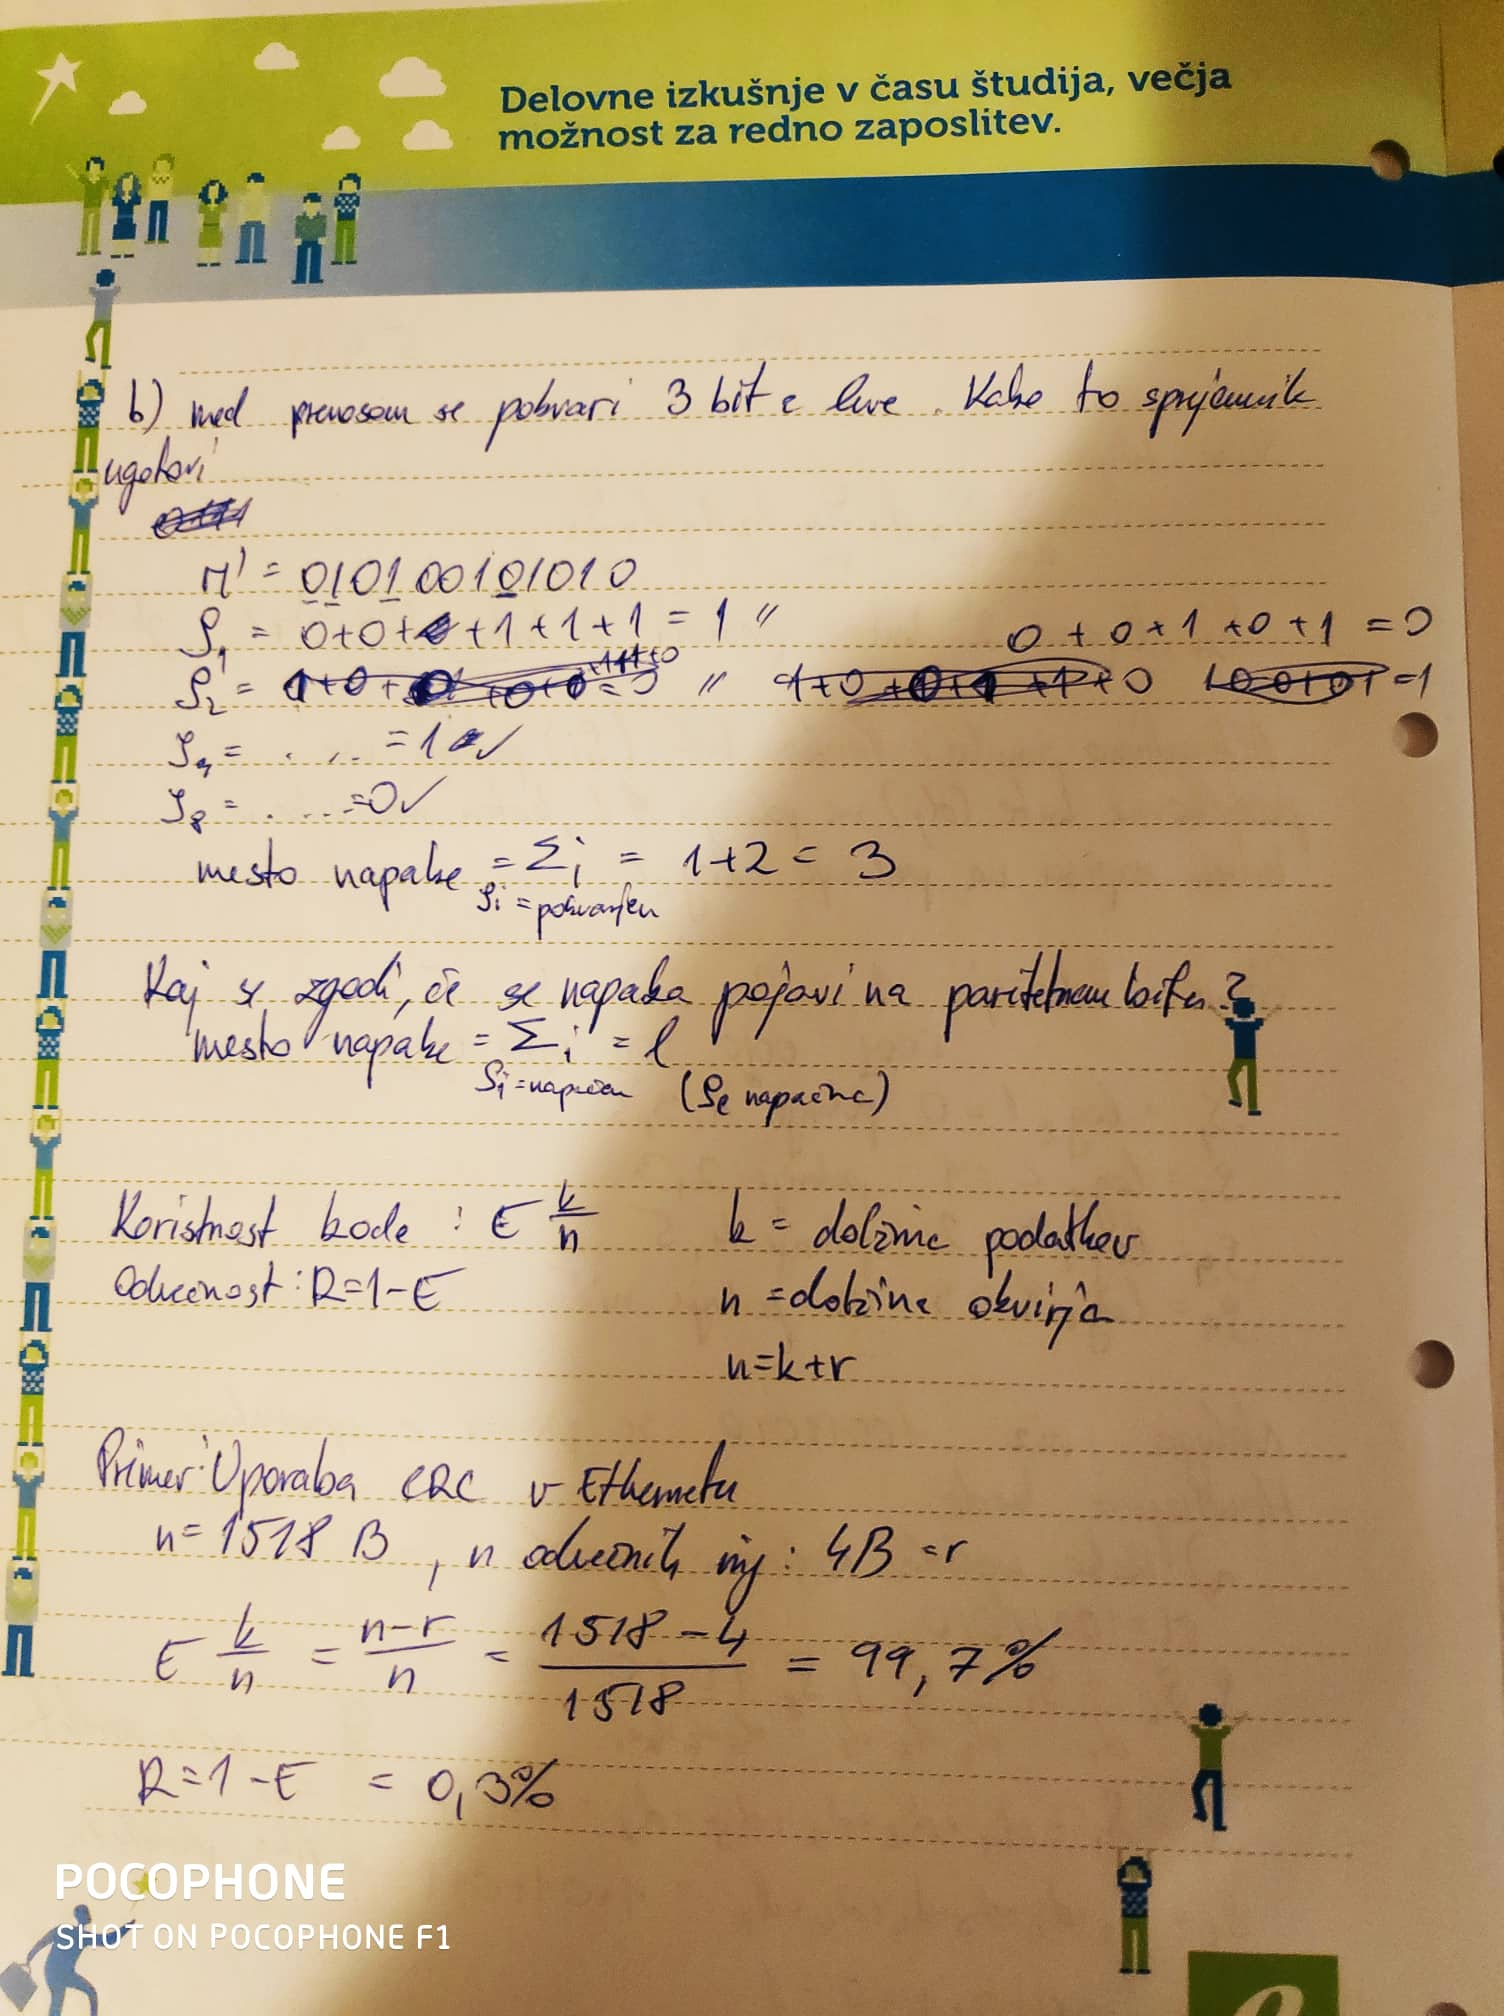 Delovne izkušnje v času študija, večja
možnost za redno zaposlitev.
b) med prenosom se pokvari 3 bit z leve. Kako to sprejemnik
ugotovi
M' = 010100101010
S1 = 0+0+ +1+1+1 = 1 〃 0+0+1+0+1 = 0
S2' = 〃 =1
S4 = . . . . = 1 ✓
S8 = . . . . =0✓
mesto napake = Σi = 1+2 = 3
Si = pokvarjen
Kaj se zgodi, če se napaka pojavi na paritetnem bitu?
mesto napake = Σi = l
Si = napačen (Sl napačna)
Koristnost kode : E k/n k = dolzina podatkov
Odvečnost: R=1-E n =dolzina okvirja
n=k+r
Primer: Uporaba CRC v Ethernetu
n= 1518 B , n odvečnih inf : 4B =r
E k/n = n-r/n = 1518-4/1518 = 99,7%
R=1-E = 0,3%
POCOPHONE
SHOT ON POCOPHONE F1